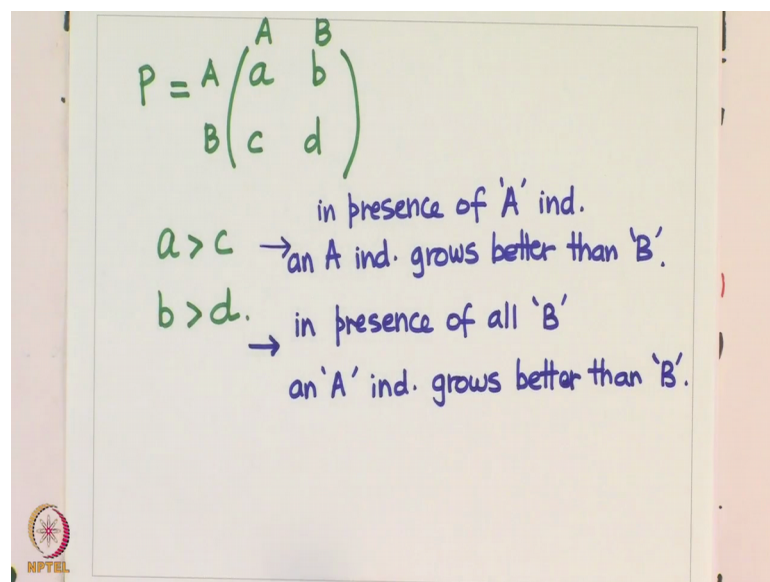 A B
P = A ( a b )
B ( c d )
in presence of 'A' ind.
a > c → an A ind. grows better than 'B'.
b > d. → in presence of all 'B'
an 'A' ind. grows better than 'B'.
NPTEL